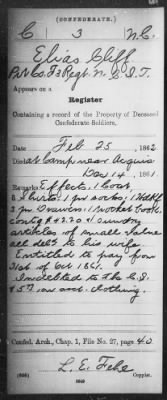 (CONFEDERATE.)
C 3 N.C.
Elias Cliff
Pvt Co. F 3 Regt. N.C.S.T.
Appears on a
Register
Containing a record of the Property of Deceased
Confederate Soldiers,
Date Feb 25, 1862
Died at Camp near Acquia
Dec 14, 1861
Remarks Effects, 1 Coat,
2 Shirts, 1 pr socks, 1 Hdkf
2 pr Drawers, 1 pocket Book
Contg $2.20 & Sundry
articles of small value
all deld to his wife
Entitled to pay from
31st of Oct 1861.
Indebted to the C.S.
$57 on acd. clothing.
Confed. Arch., Chap. 1, File No. 27, page 40
L. E. Fehe
Copyist.